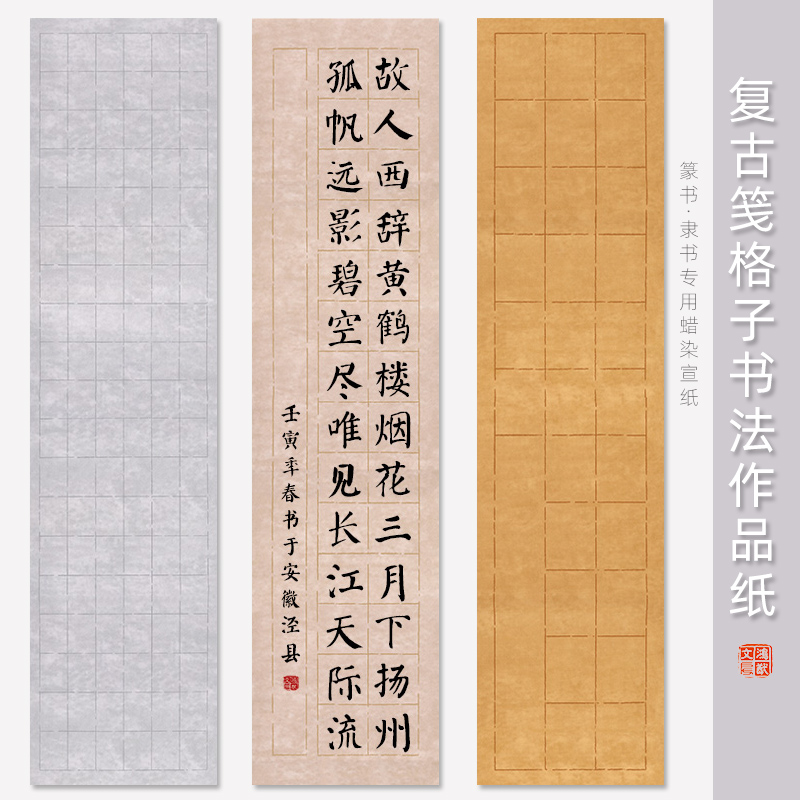 复古笺格子书法作品纸
篆书·隶书专用蜡染宣纸
故人西辞黄鹤楼烟花三月下扬州
孤帆远影碧空尽唯见长江天际流
壬寅年春书于安徽泾县